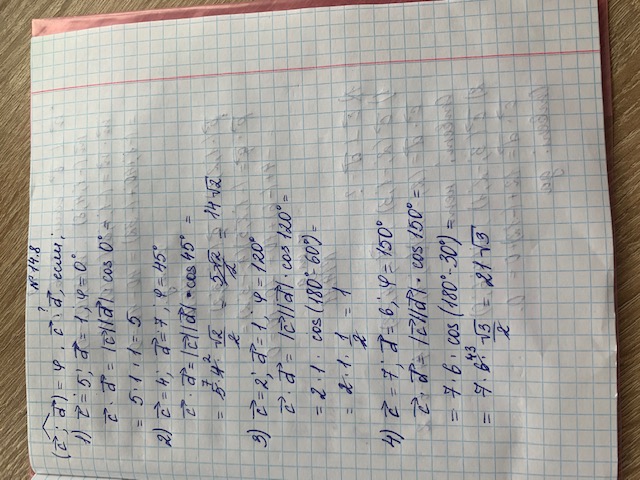 № 14.8
(c⃗ ; d⃗) = φ, c⃗ · d⃗ - ?, если;
1) c⃗ = 5; d⃗ = 1, φ = 0°
c⃗ · d⃗ = |c⃗||d⃗| · cos 0° =
= 5·1·1 = 5
2) c⃗ = 4; d⃗ = 7, φ = 45°
c⃗ · d⃗ = |c⃗||d⃗| · cos 45° =
= 4² · √2/2 = 5√2/2 = 14√2
3) c⃗ = 2; d⃗ = 1; φ = 120°
c⃗ · d⃗ = |c⃗||d⃗| · cos 120° =
= 2·1· cos (180° - 60°) =
= 2·1· 1/2 = 1
4) c⃗ = 7; d⃗ = 6; φ = 150°
c⃗ · d⃗ = |c⃗||d⃗| · cos 150° =
= 7·6· cos (180° - 30°) =
= 7·6³ · √3/2 = 21√3